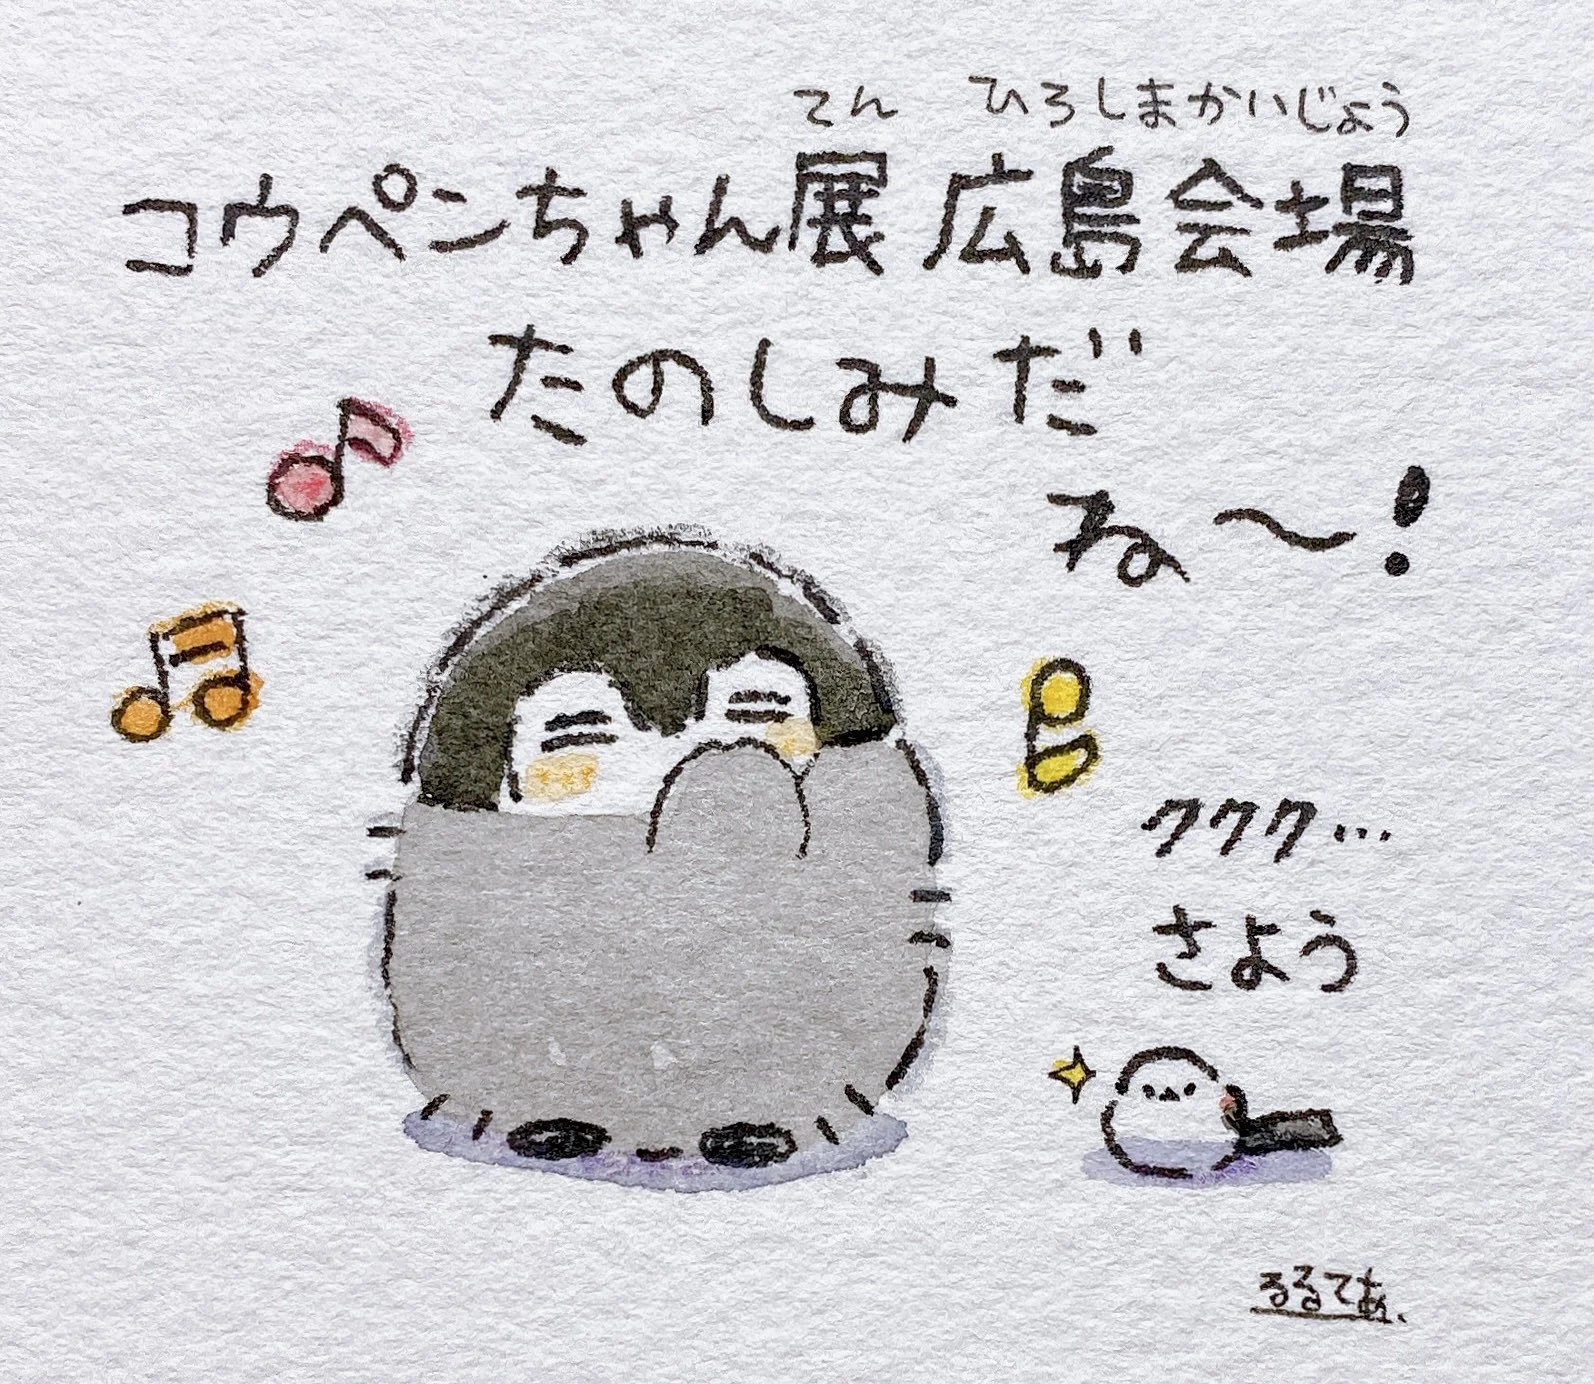 てん ひろしまかいじょう
コウペンちゃん展 広島会場
たのしみだ
ね〜!
ククク…
さよう
るるてあ